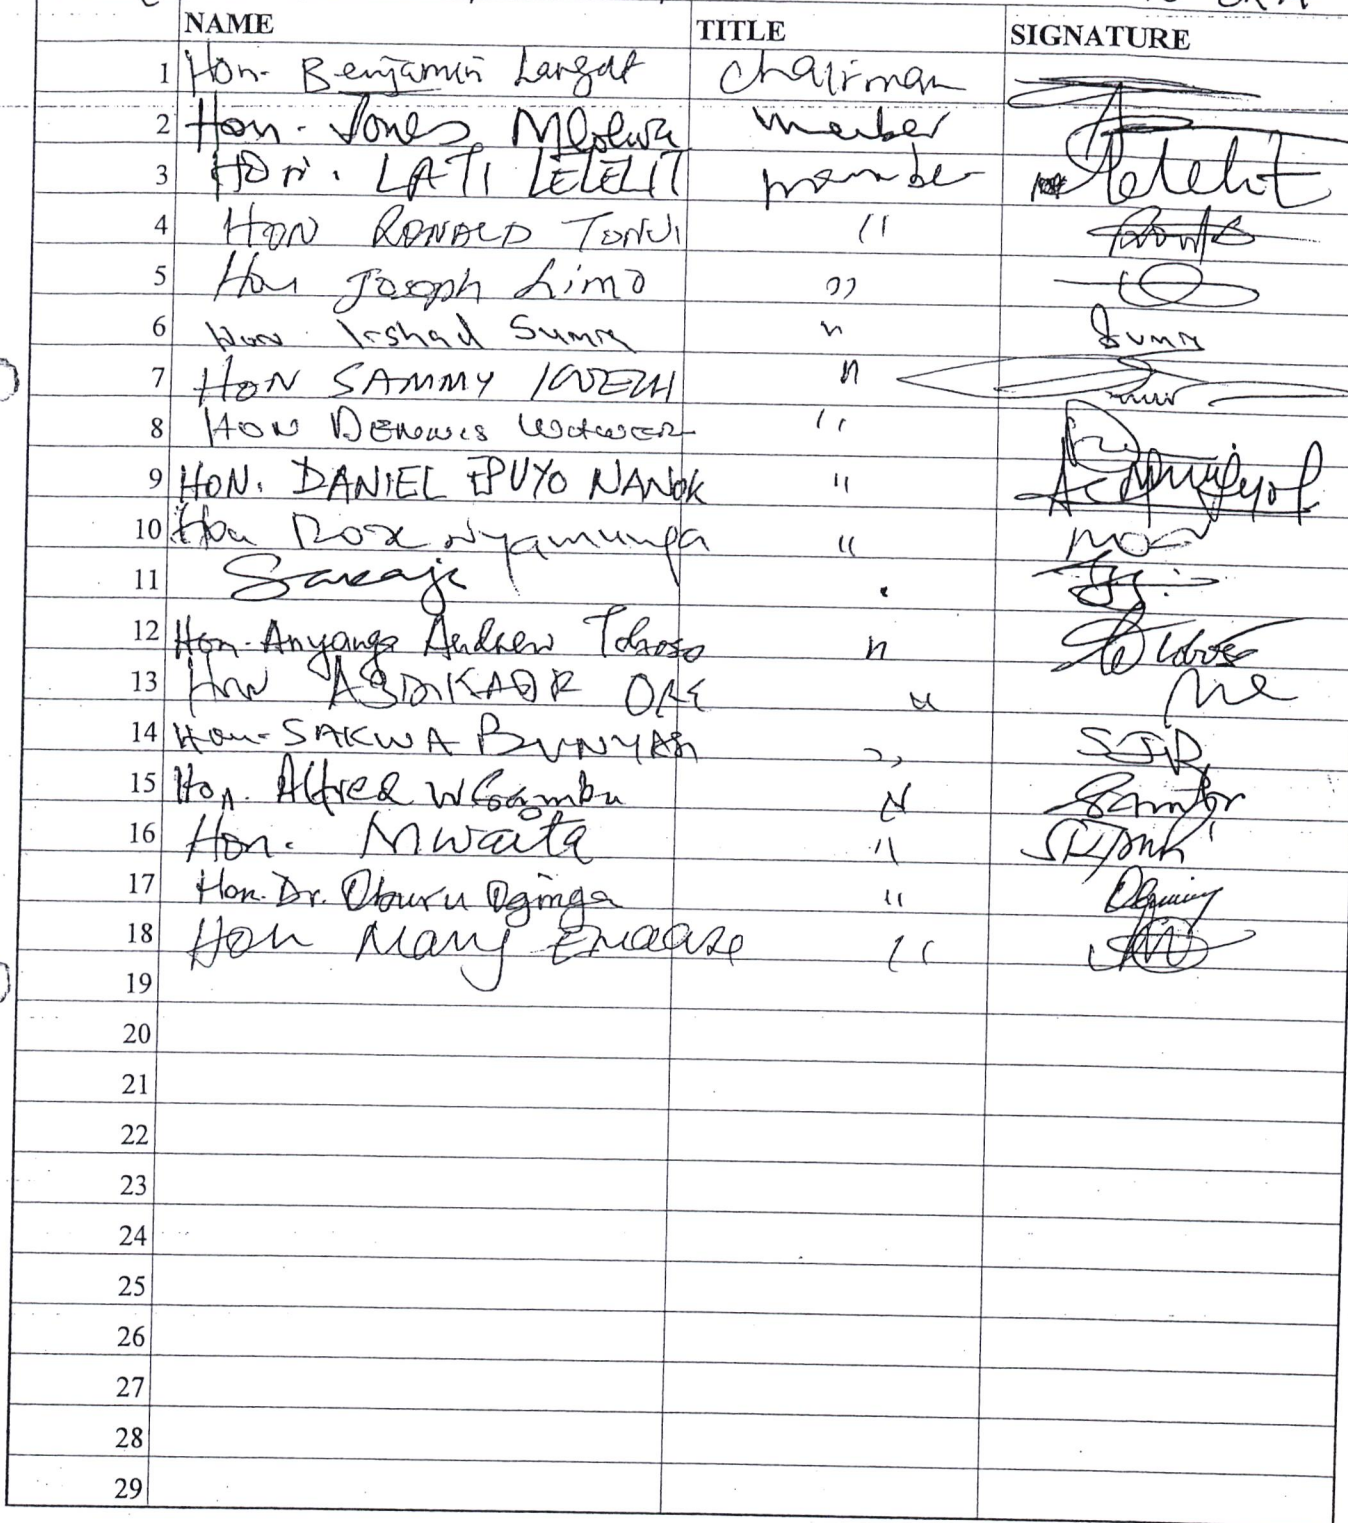 NAME TITLE SIGNATURE
1 Hon. Benjamin Langat Chairman
2 Hon. Jones Mlolwa member
3 HON. LATI LELELIT member Lelelit
4 HON RONALD TONUI "
5 Hon Joseph Limo "
6 Hon. Irshad Sumra " Sumra
7 HON SAMMY "
8 HON DENNIS "
9 HON. DANIEL EPUYO NANOK "
10 Hon Rose Nyamunga "
11 Sakaja "
12 Hon. Anyanga Andrew Toboso "
13 Hon ABDIKADR ORE "
14 Hon. SAKWA BUNYASI "
15 Hon. Alfred W Sambu "
16 Hon. Mwaita "
17 Hon. Dr. Oburu Oginga "
18 Hon Mary Emaase "
19
20
21
22
23
24
25
26
27
28
29